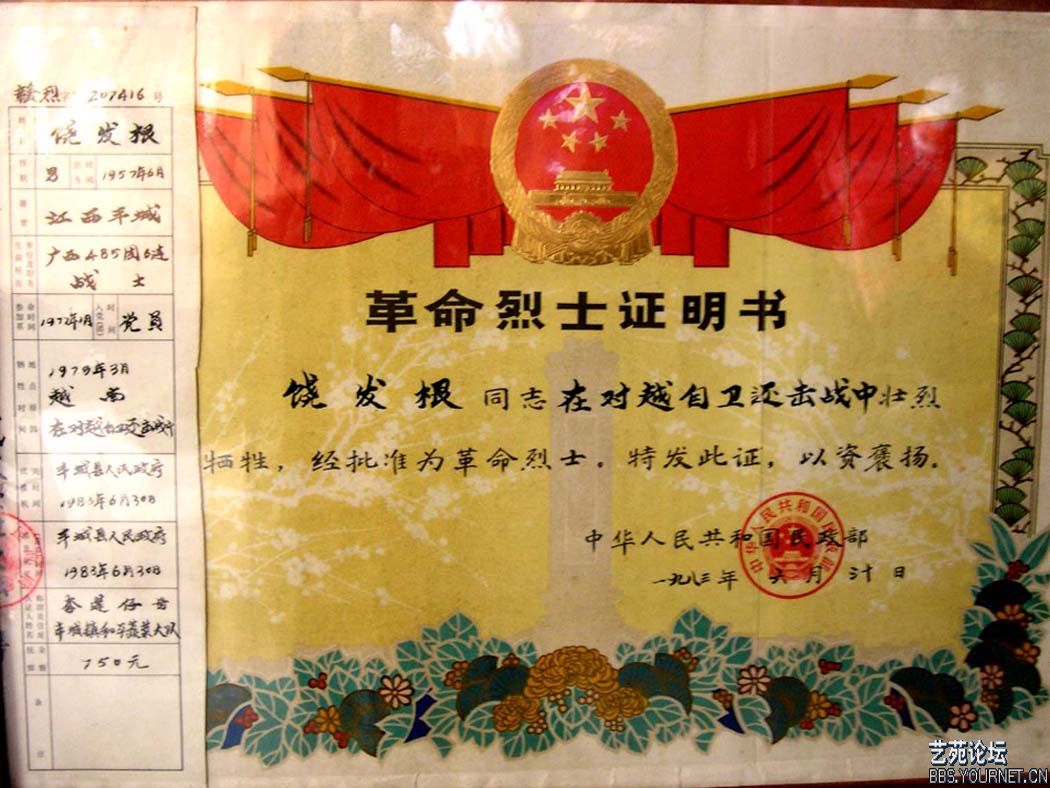 赣烈 207416号
饶发根
男 1957年6月
江西丰城
广西485团6连
战士
党员
1979年3月
越南
在对越自卫还击战中
丰城县人民政府
1983年6月30日
丰城县人民政府
1983年6月30日
丰城镇和平蔬菜大队
750元
备注
革命烈士证明书
饶发根同志在对越自卫还击战中壮烈
牺牲，经批准为革命烈士。特发此证，以资褒扬。
中华人民共和国民政部
一九八三年六月卅日
中华人民共和国民政部
艺苑论坛
BBS.YOURNET.CN